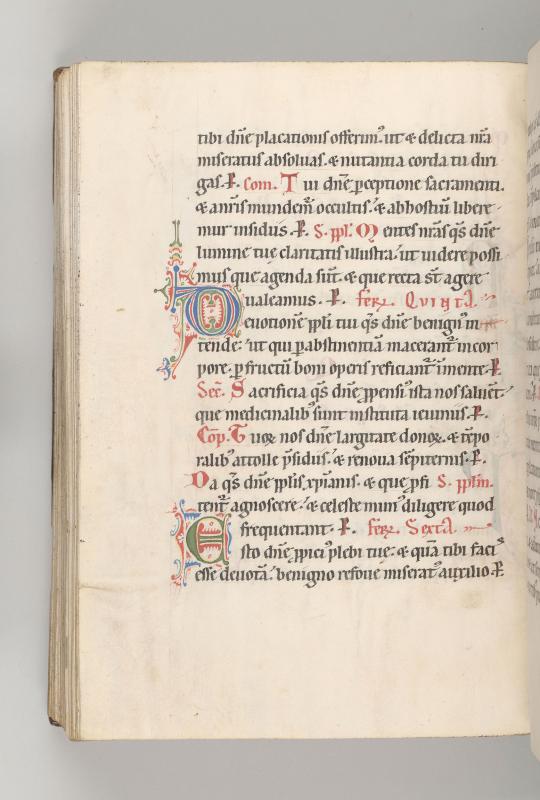 tibi dñe placationis offerim᷒. ut & delicta nr̃a
miseratus absoluas. & nutantia corda tu diri
gas. P. Com. Tui dñe p̱ceptione sacramenti.
& a nr̃is mundem᷒ occultis. & ab hostiū libere
mur insidiis. P. S. pp̱l. Mentes nr̃as q̃s dñe
lumine tue claritatis illustra. ut uidere possi
mus que agenda sūt. & que recta st̄ agere
ualeamus. P. ferꝝ. Quinta.
Deuotionē pp̱li tui q̃s dñe benign᷒ in
tende. ut qui p̱ abstinentiā macerant᷒ in cor
pore. p̱ fructum boni operis reficiant᷒ i mente. P.
Secr̄. Sacrificia q̃s dñe ppensi᷒ ista nos saluēt.
que medicinalib᷒ sunt instituta ieiuniis. P.
Cōp. Tuoꝝ nos dñe largitate donoꝝ. & tēpo
ralib᷒ attolle p̄sidiis. & renoua sēpiternis. P.
Da q̃s dñe pp̱lis xp̄ianis. & que p̱fi S. pp̱lm.
tent᷒ agnoscere. & celeste mun᷒ diligere quod
frequentant. P. ferꝝ. Sexta
Esto dñe pp̱ici᷒ plebi tue. & quā tibi faci᷒
esse deuotā. benigno refoue miserat᷒ auxilio. P.